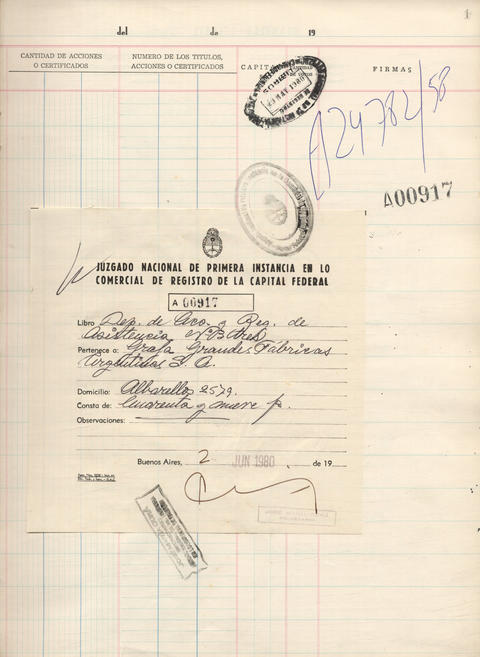 1
del de 19
CANTIDAD DE ACCIONES
O CERTIFICADOS
NUMERO DE LOS TITULOS,
ACCIONES O CERTIFICADOS
CAPITAL
CANTIDAD
DE VOTOS
FIRMAS
MAY 1980
A 24782/58
A00917
JUZGADO NACIONAL DE PRIMERA INSTANCIA EN LO
COMERCIAL DE REGISTRO DE LA CAPITAL FEDERAL
A 00917
Libro Dep. de Acc. y Reg. de
Asistencia Nº 3 Tres
Pertenece a: Grafa Grandes Fábricas
Argentinas S. A.
Domicilio: Albarellos 2579.
Consta de: Cuarenta y nueve f.
Observaciones:
Buenos Aires, 2 JUN 1980 de 19